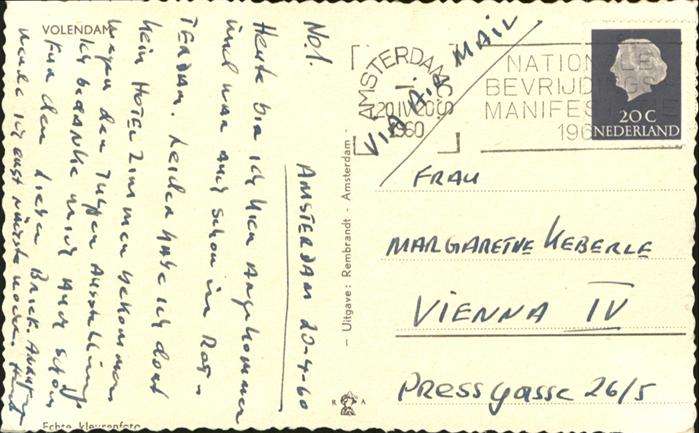 VOLENDAM
No. 1.
AMSTERDAM 20-4-60
Heute bin ich hier angekommen
und war auch schon in ROT-
TERDAM. Leider habe ich dort
kein HOTELZIMMER bekommen
wegen der Ausstellung.
Ich bedanke mich auch schon
für den lieben Brief.
werde ich erst nächste Woche
Echte kleurenfoto
- Uitgave: Rembrandt - Amsterdam -
R A
AMSTERDAM CS
20 IV 2000
1960
NATIONALE
BEVRIJDINGS
MANIFESTATIE
196
20 C
NEDERLAND
VIA AIR MAIL
FRAU
MARGARETHE KEBERLE
VIENNA IV
PRESSGASSE 26/5